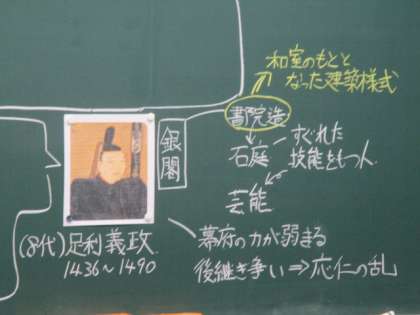 和室のもとと
なった建築様式
書院造
銀閣
石庭
すぐれた
技能をもつ人
芸能
(8代)足利義政
1436〜1490
幕府の力が弱まる
後継ぎ争い⇒応仁の乱